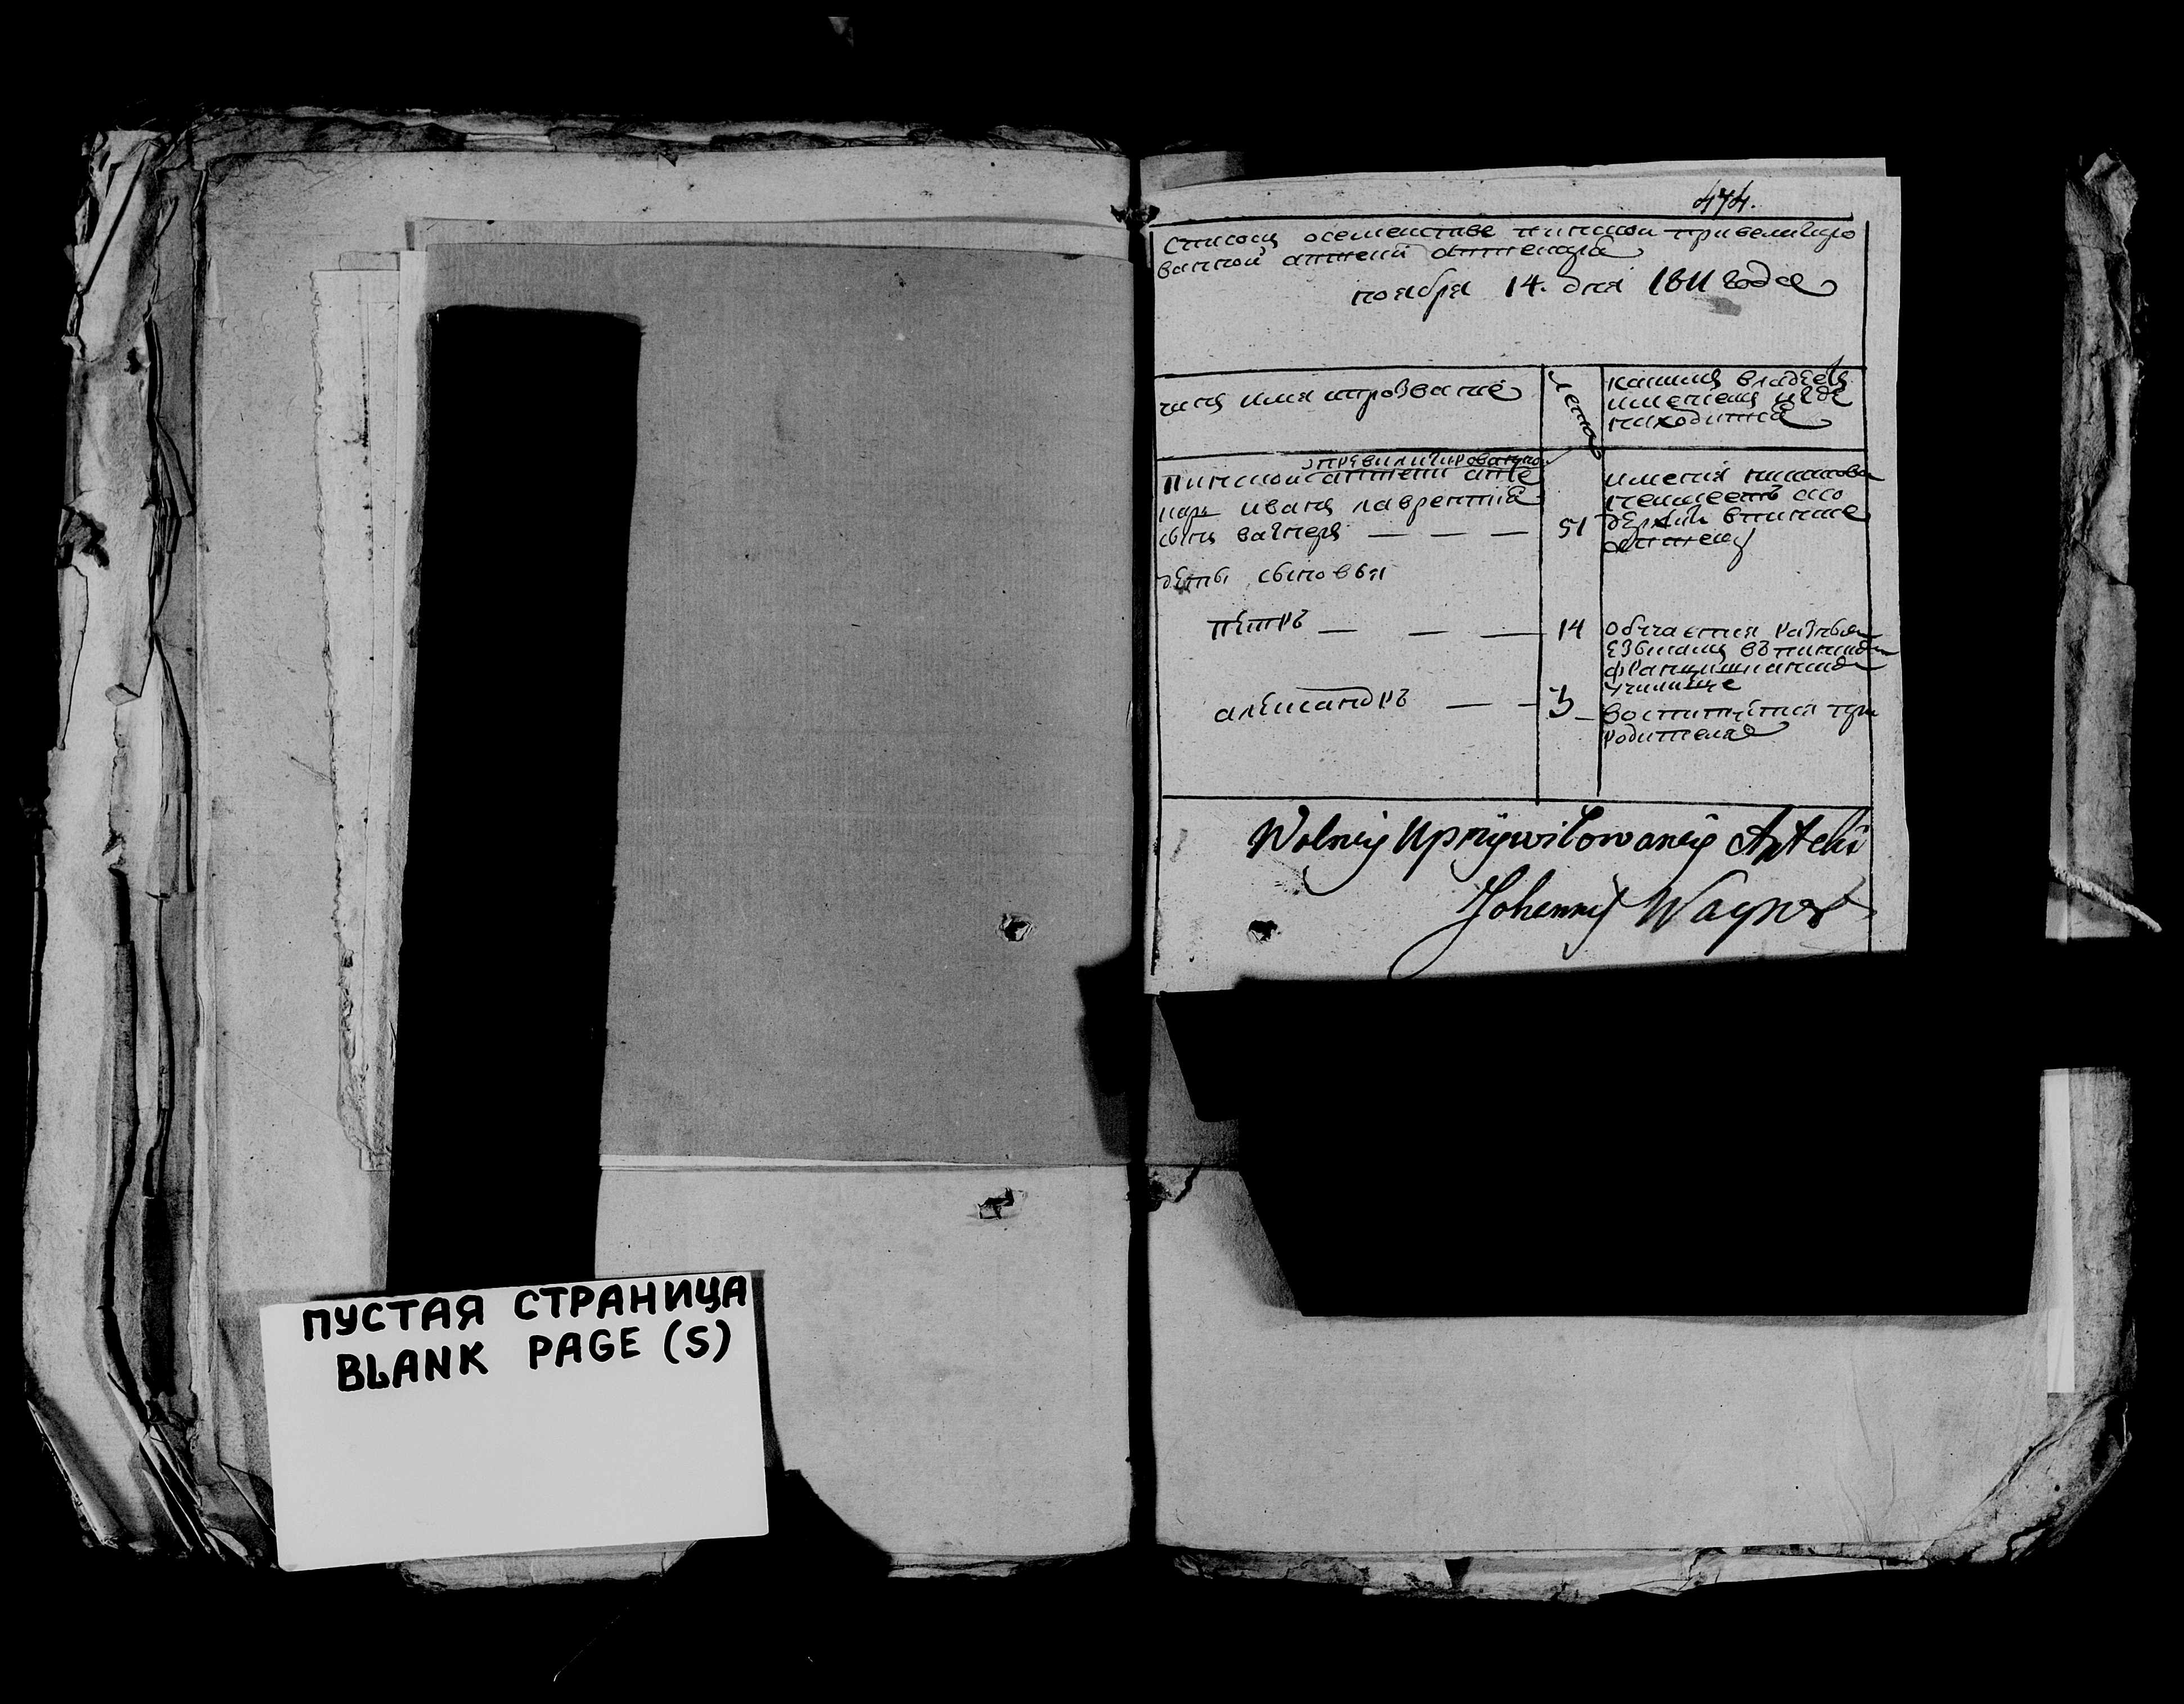 474.
списокъ осемействе пинской привелигиро
ванной аптеки аптекара
ноября 14. дня 1811 года
чинъ имя ипрозваніе
лета
какимъ владеетъ
имениемъ игде
находитца
привилигированной
Пинской аптеки апте
карь иванъ лаврентіевъ
сынъ вагнеръ — — —
51
имения никакова
неимеетъ а со
держитъ впинске
аптеку
дети сыновья
петръ — — —
14
Обучается разнымъ
езыкамъ въ пинскомъ
францишканскомъ
училище
александръ — —
3
воспитуется при
родителяхъ
Wolney Uprzywilowaney Apteki
Johenny Wagner
ПУСТАЯ СТРАНИЦА
BLANK PAGE (S)